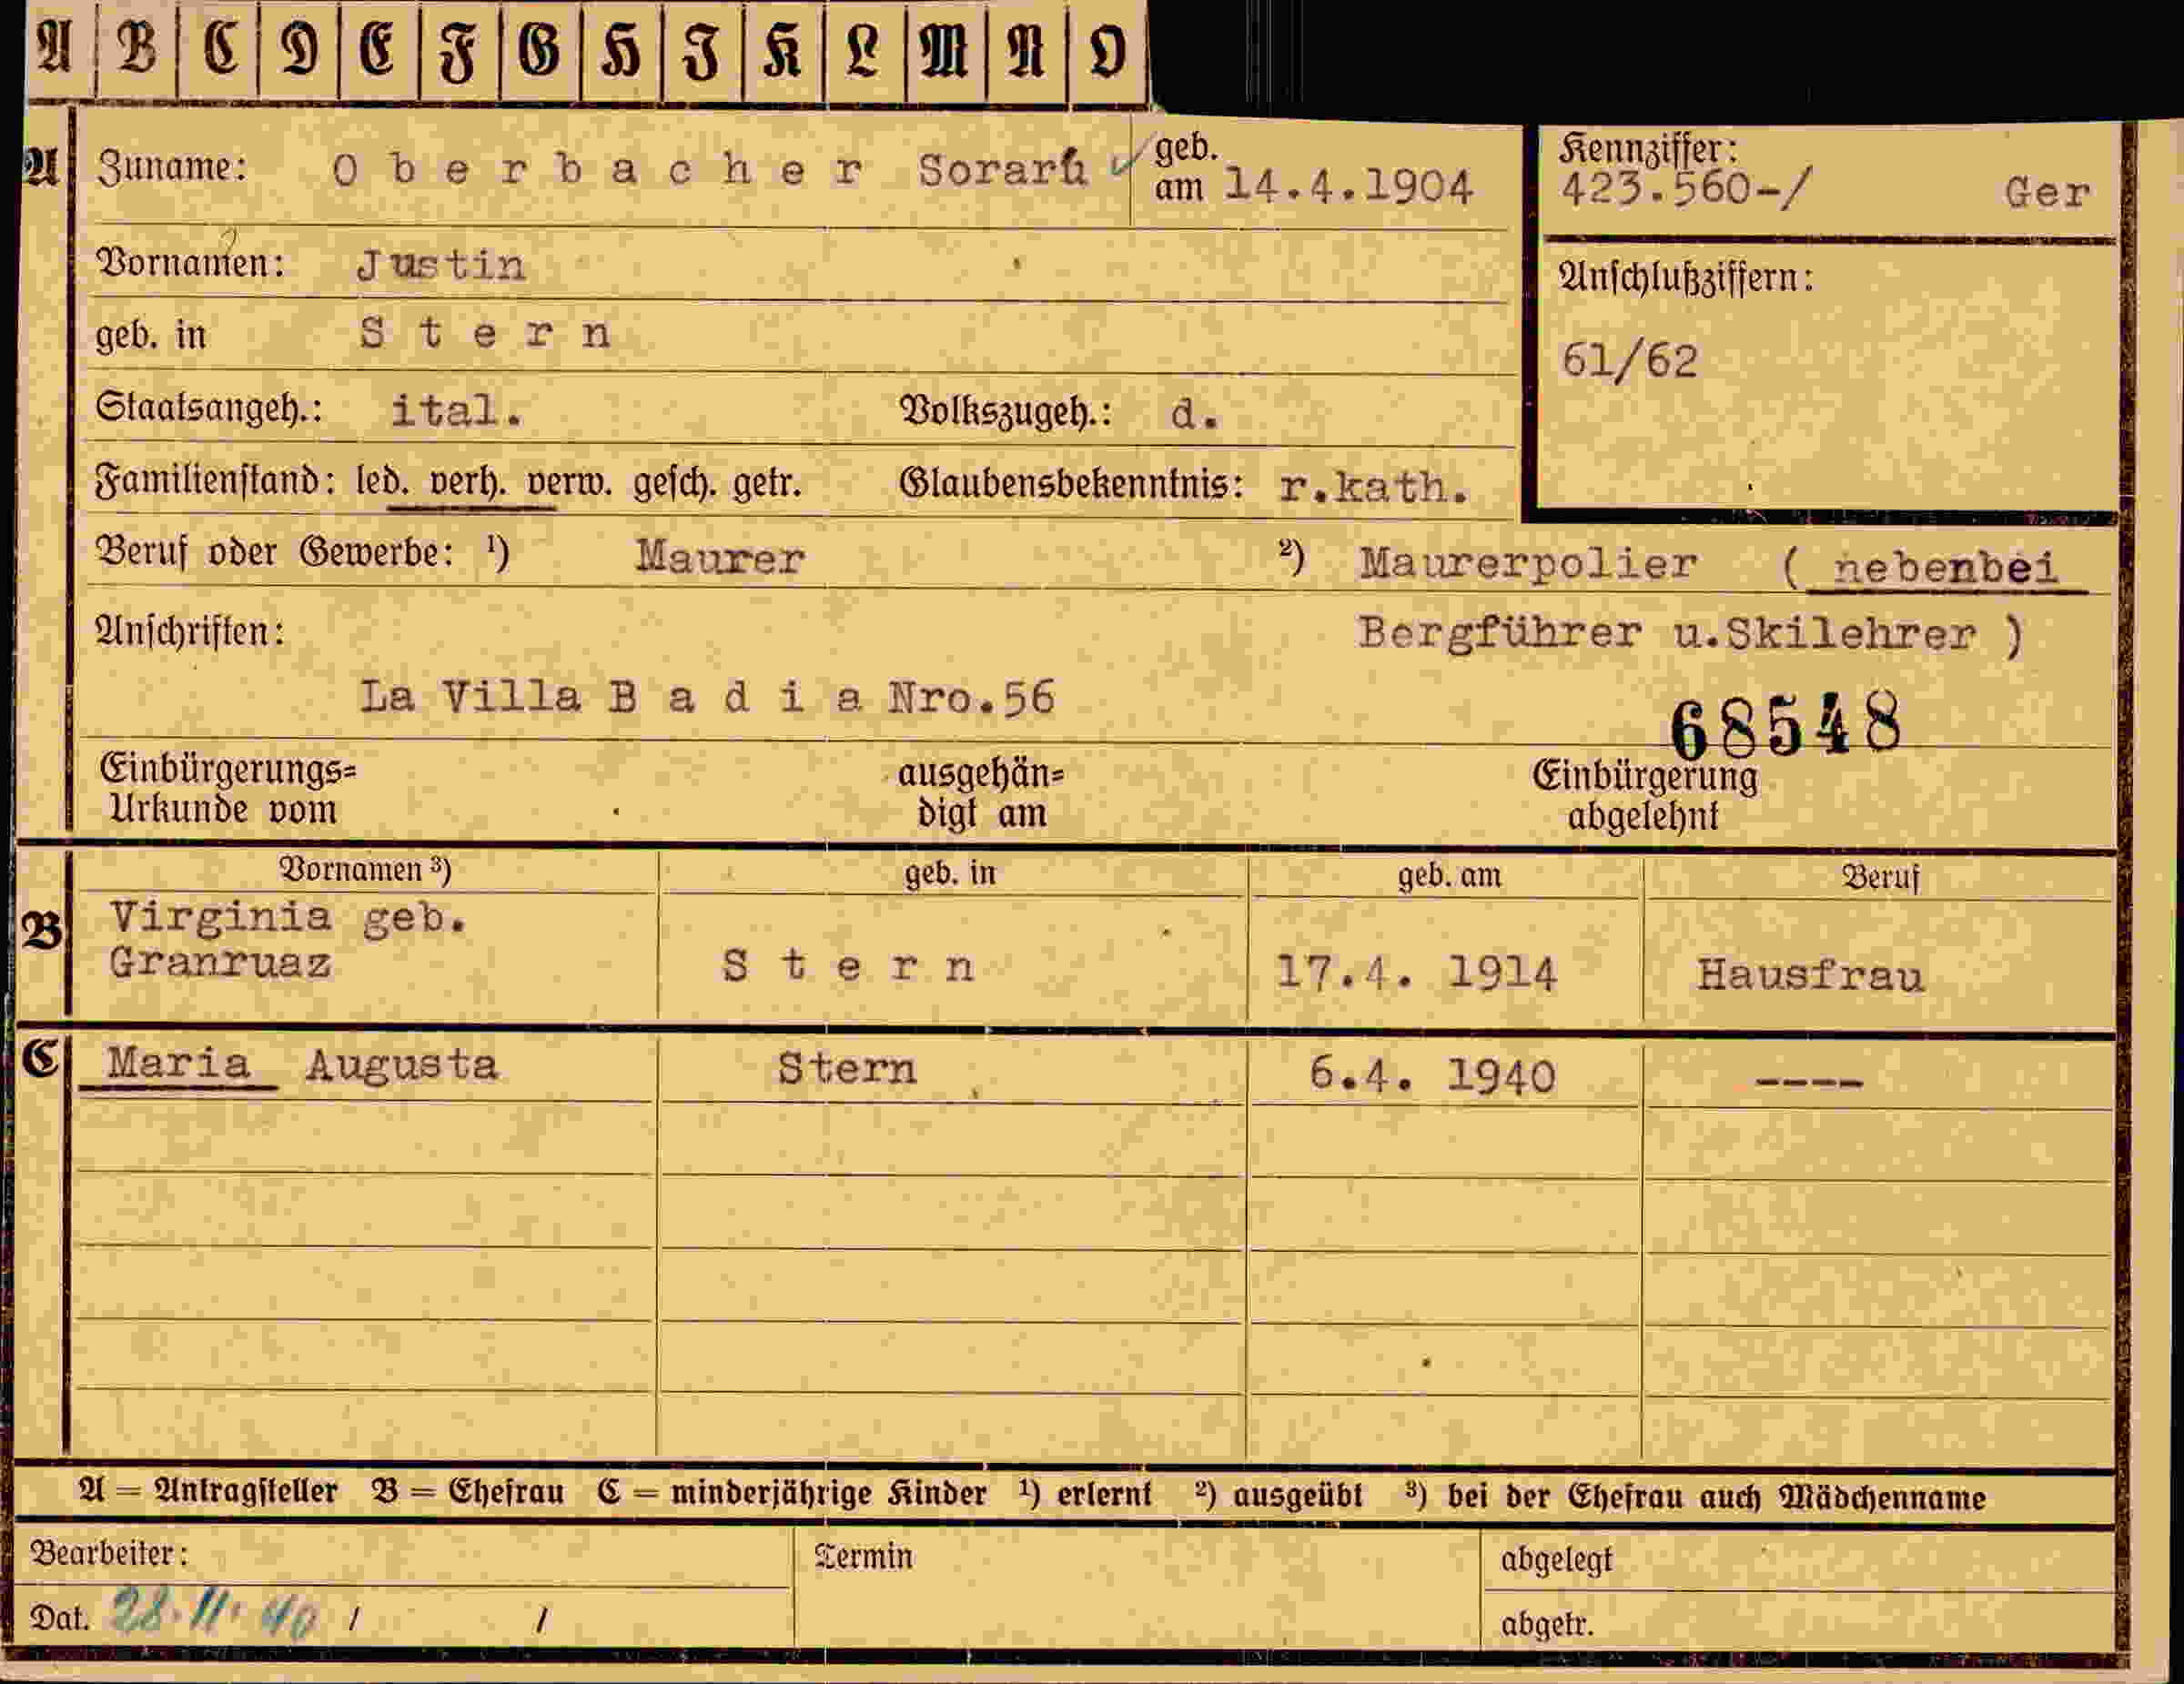 A B C D E F G H I K L M N O
A Zuname: O b e r b a c h e r Sorarú geb. am 14.4.1904
Kennziffer: 423.560-/ Ger
Vornamen: Justin
Anschlußziffern:
geb. in S t e r n
61/62
Staatsangeh.: ital. Volkszugeh.: d.
Familienstand: led. verh. verw. gesch. getr. Glaubensbekenntnis: r.kath.
Beruf oder Gewerbe: ¹) Maurer ²) Maurerpolier ( nebenbei
Anschriften: Bergführer u.Skilehrer )
La Villa B a d i a Nro.56
68548
Einbürgerungs= ausgehän= Einbürgerung
Urkunde vom digt am abgelehnt
Vornamen ³) geb. in geb. am Beruf
B Virginia geb.
Granruaz S t e r n 17.4. 1914 Hausfrau
C Maria Augusta Stern 6.4. 1940 ----
A = Antragsteller B = Ehefrau C = minderjährige Kinder ¹) erlernt ²) ausgeübt ³) bei der Ehefrau auch Mädchenname
Bearbeiter: Termin abgelegt
Dat. 28.11.40 / / abgetr.